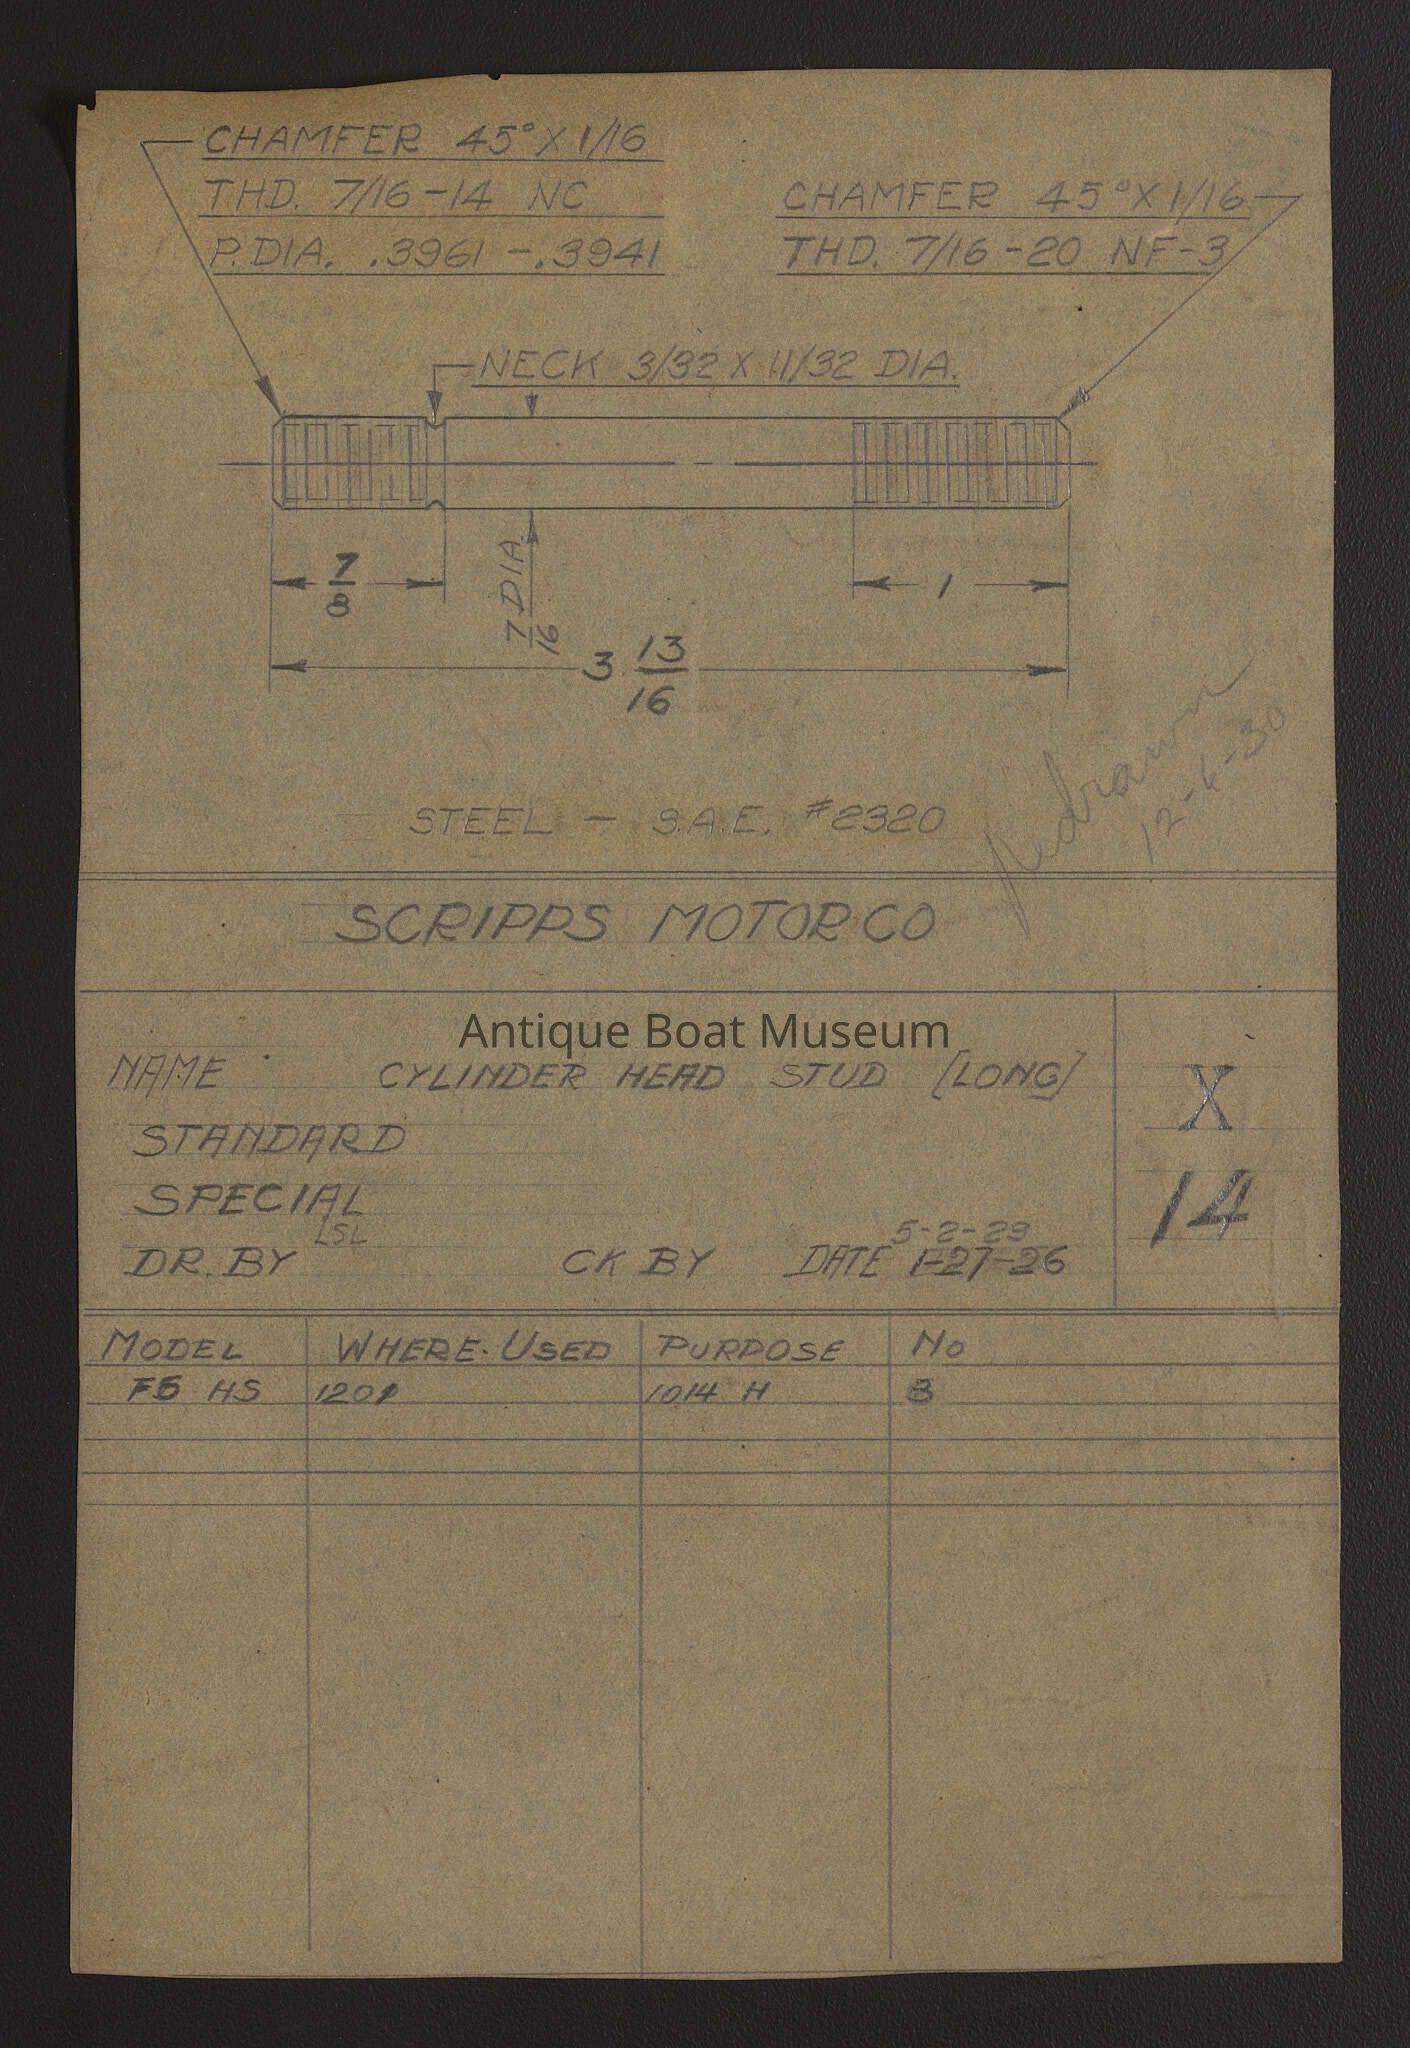 CHAMFER 45° X 1/16
THD. 7/16-14 NC
P. DIA. .3961 - .3941
CHAMFER 45° X 1/16
THD. 7/16-20 NF-3
NECK 3/32 X 11/32 DIA.
7/8
7/16 DIA
1
3 13/16
STEEL - S.A.E. #2320
Redrawn
12-6-30
SCRIPPS MOTOR CO
Antique Boat Museum
NAME CYLINDER HEAD STUD [LONG]
X
14
STANDARD
SPECIAL
LSL
5-2-29
DR. BY CK BY DATE 1-27-26
MODEL WHERE USED PURPOSE NO
F6 HS 1201 1014 H 8